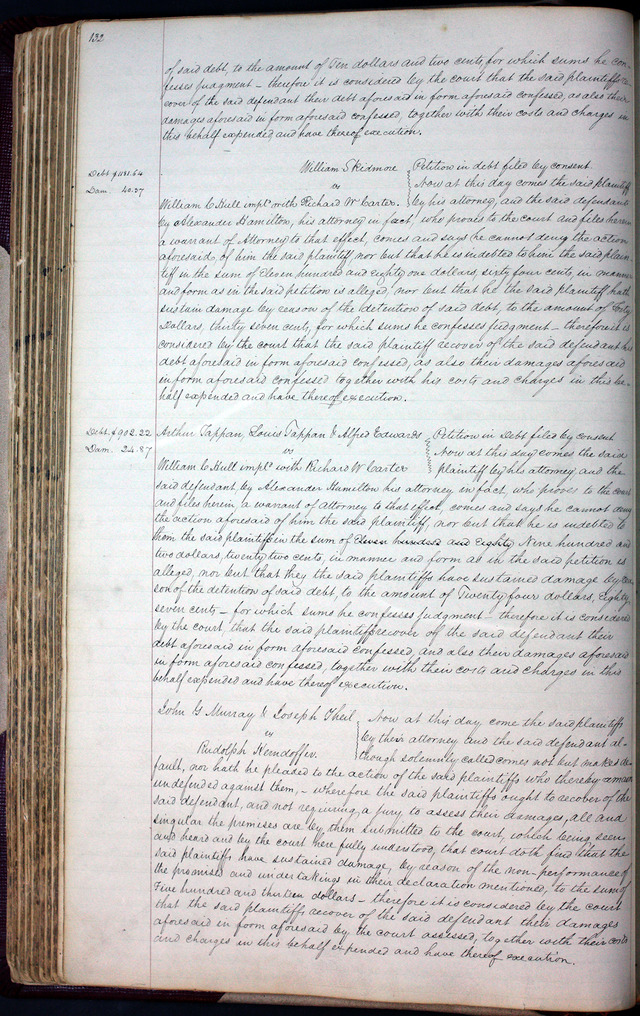 132
of said debt, to the amount of Ten dollars and two cents, for which sums he con-
fesses judgment – therefore it is considered by the court that the said plaintiffs re-
cover of the said defendant their debt aforesaid in form aforesaid confessed, as also their
damages aforesaid in form aforesaid confessed, together with their costs and charges in
this behalf expended, and have thereof execution.
William Skidmore
Debt $1181.64
Dam. 40.37
vs
William C Hull impld with Richard W Carter.
Petition in debt filed by consent.
Now at this day comes the said plaintiff
by his attorney, and the said defendant
by Alexander Hamilton, his attorney in fact, who proves to the court and files herein
a warrant of Attorney to that effect, comes and says he cannot deny the action
aforesaid, of him the said plaintiff, nor but that he is indebted to him the said plain-
tiff in the sum of Eleven hundred and eighty one dollars, sixty four cents, in manner
and form as in the said petition is alleged, nor but that he the said plaintiff hath
sustain damage by reason of the detention of said debt, to the amount of Forty
Dollars, thirty seven cents, for which sums he confesses judgment – therefore it is
considered by the court that the said plaintiff recover of the said defendant his
debt aforesaid in form aforesaid confessed, as also their damages aforesaid
in form aforesaid confessed together with his costs and charges in this be-
half expended and have thereof execution.
Debt. $902.22
Dam. 24.87
Arthur Tappan, Louis Tappan & Alfred Edwards
vs
William C Hull impld with Richard W Carter
Petition in Debt filed by consent
Now at this day comes the said
plaintiff by his attorney, and the
said defendant by Alexander Hamilton his attorney in fact, who proves to the court
and files herein, a warrant of attorney to that effect, comes and says he cannot deny
the action aforesaid of him the said plaintiff, nor but that he is indebted to
them the said plaintiffs in the sum of Eleven hundred and Eighty Nine hundred and
two dollars, twenty two cents, in manner and form as in the said petition is
alleged, nor but that they the said plaintiffs have sustained damage by rea-
son of the detention of said debt, to the amount of Twenty four dollars, Eighty
seven cents – for which sums he confesses judgment – therefore it is considered
by the court, that the said plaintiffs recover of the said defendant their
debt aforesaid in form aforesaid confessed, and also their damages aforesaid
in form aforesaid confessed, together with their costs and charges in this
behalf expended and have thereof execution.
John G Murray & Joseph Theil
vs
Rudolph Herndoffer.
Now at this day come the said plaintiffs
by their attorney and the said defendant al-
though solemnly called comes not but makes de-
fault, nor hath he pleased to the action of the said plaintiffs who thereby remain
undefended against them, – wherefore the said plaintiffs ought to recover of the
said defendant, and not requiring a jury to assess their damages, all and
singular the premises are by them submitted to the court, which being seen
and heard and by the court here fully understood, that court doth find that the
said plaintiffs have sustained damage, by reason of the non-performance of
the promises and undertakings in their declaration mentioned, to the sum of
Five hundred and thirteen dollars – therefore it is considered by the court
that the said plaintiffs recover of the said defendant their damages
aforesaid in form aforesaid by the court assessed, together with their costs
and charges in this behalf expended and have thereof execution.